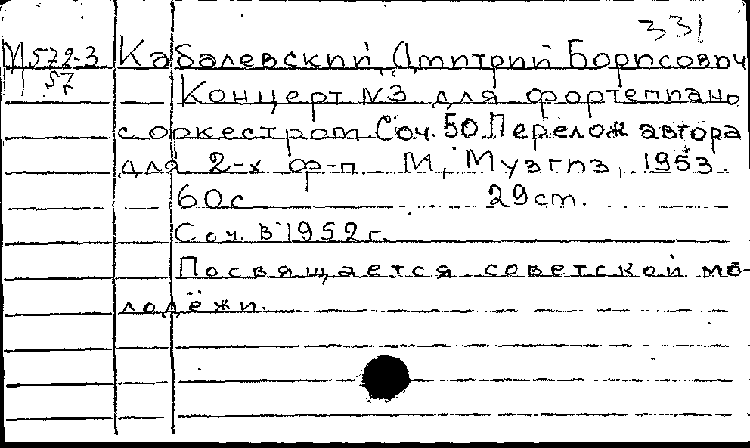 331
М572-3 Кабалевский, Дмитрий Борисович
57
Концерт №3 для фортепиано
с оркестром Соч. 50. Перелож автора
для 2-х ф-п. М, Музгиз, 1953.
60с 29см.
Соч. в 1952 г.
Посвящается советской мо-
лодёжи.